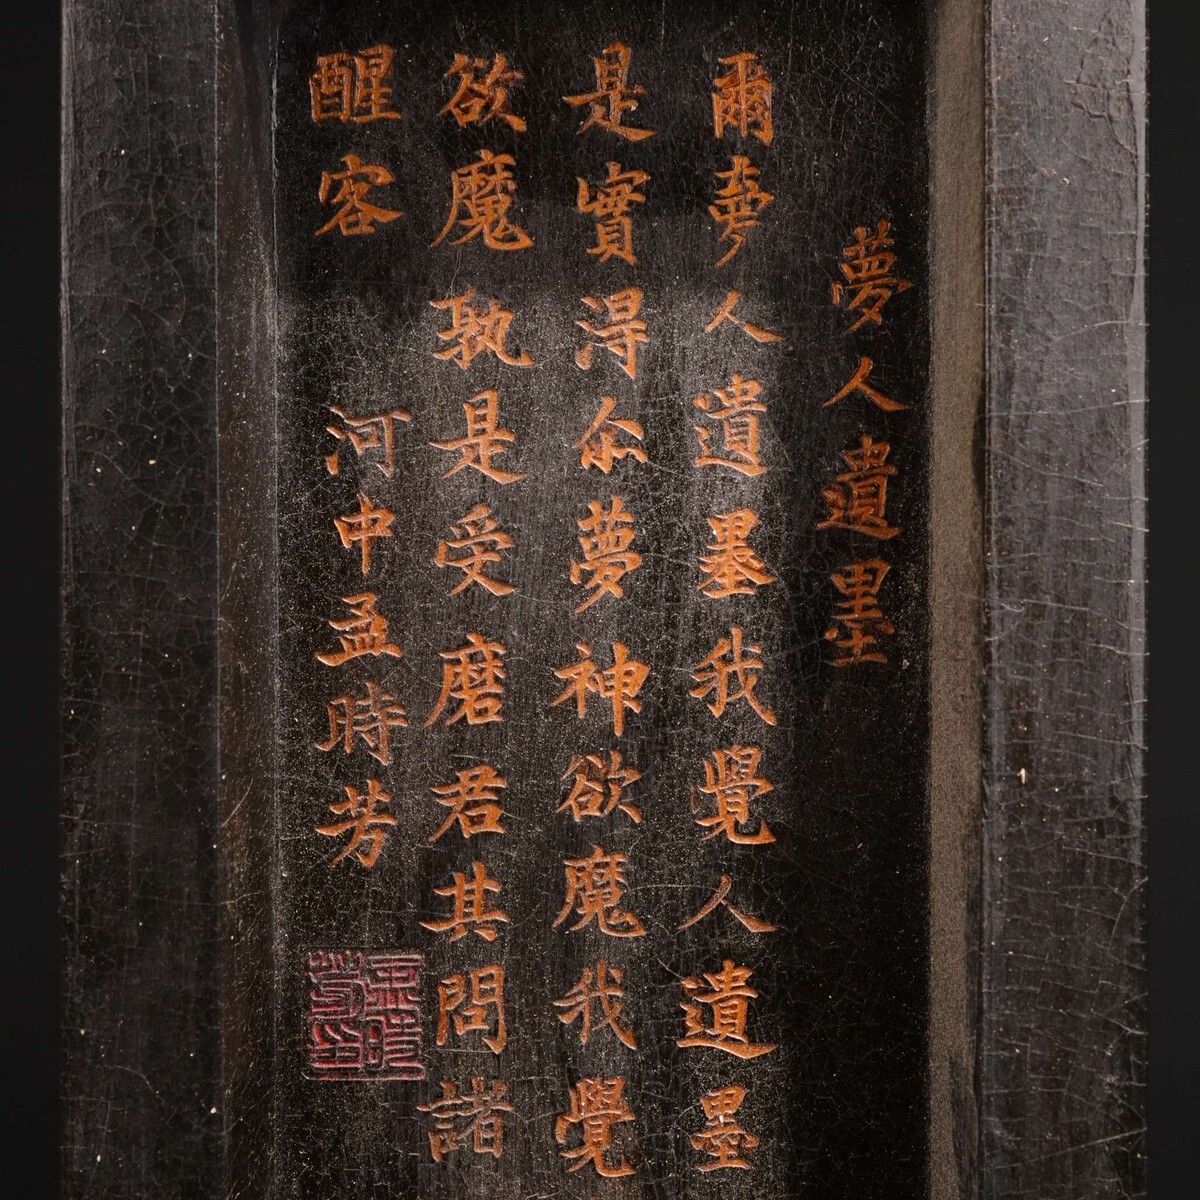 夢人遺墨
爾夢人遺墨我覺人遺墨
是實得尒夢神欲魔我覺
欲魔孰是受磨君其問諸
醒客　河中孟時芳
孟時芳印